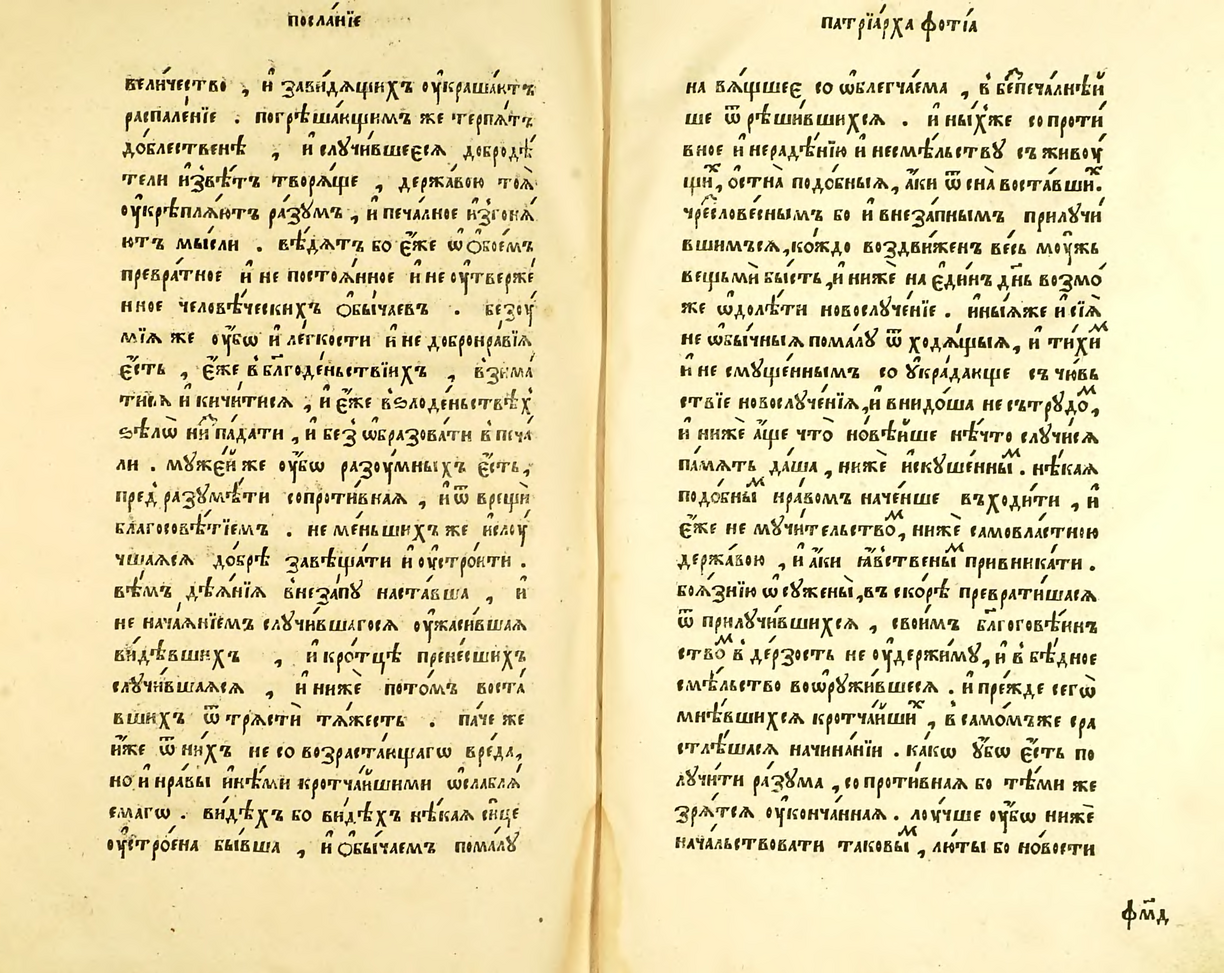 посла́нїе
вели́чество , и҆ зави́дѧщихъ оу҆краша́ютъ
распале́нїе . погрѣша́ющимъ же терпѧ́тъ
до́блественѣ , и҆ случи́вшеесѧ доброде́
тели и҆звѣ́тъ творѧ́ще , держа́вою тоѧ̀
оу҆крѣплѧ́ютъ ра́зумъ , и҆ печа́лное и҆згонѧ́
ютъ мы́сли . вѣ́дѧтъ бо є҆́же ѡ҆ Ѻбое́мъ
превра́тное и҆ не постоѧ́нное и҆ не оу҆тверже́
нное человѣ́ческихъ Ѻбы́чаевъ . безоу́
мїѧ же оу҆́бѡ и҆ ле́гкости и҆ не добронра́вїѧ
є҆́сть , є҆́же в бл҃годе́ньствїихъ , взима́
тисѧ и҆ кичи́тисѧ , и҆ є҆́же в ѕлоде́ньствѣх
ѕѣлѡ̀ ни́ па́дати , и҆ без̾ ѡ҆бразова́ти в печа́
ли . муже́й же оу҆́бѡ разоу́мныхъ є҆́сть,
пред̾ разумѣ́ти сопроти́внаѧ , и҆ ѿ врещѝ
благосовѣ́тїемъ . не ме́ньшихъ же и҆ слоу
чша́ѧсѧ до́брѣ завѣща́ти и҆ оу҆стро́ити .
вѣ́мъ дѣѧ́нїѧ внеза́пу наста́вша , и҆
не нача́ѧнїемъ случи́вшагосѧ оу҆жаси́вшаѧ
ви́дѣвшихъ , и҆ кро́тцѣ прене́сшихъ
случи́вшаѧсѧ , и҆ нижѐ пото́мъ воста́
вшихъ ѿ трѧ́сти тѧ́жесть . па́че же
и҆́же ѿ ни́хъ не со возраста́ющагѡ вре́да,
но и҆ нра́вы и҆нѣ́ми кротча́йшими ѡ҆слаблѧ́
емагѡ . ви́дѣхъ бо ви́дѣхъ нѣ́каѧ си́це
оу҆стро́ена бы́вша , и҆ Ѻбы́чаемъ пома́лу
патрїа́рха фотїа́
на вѧ́щшеє со ѡ҆блегча́ема , в безпеча́лнѣй
ше ѿ рѣши́вшихсѧ . и҆ ны́хже сопроти
вное и҆ нераде́нїю и҆ несмѣ́льству съ живоу́
щи́х, о҆стна̀ подо́бныѧ, а҆́ки ѿ сна̀ воста́вших.
чресло́веснымъ бо и҆ внеза́пнымъ прилучи́
вшимъсѧ, ко́ждо воздви́женъ ве́сь моу́жь
вещьмѝ бы́сть, и҆ нижѐ на є҆ди́нъ дн҃ь возмо́
же ѡ҆долѣ́ти новослуче́нїе . и҆ны́ѧже и҆ сїѧ̀
не ѡ҆бы́чныѧ пома́лу ѿ ходѧ́щыѧ, и҆ ти́хим
и҆ не смуще́ннымъ со у҆кра́дающе съ чю́вь
ствїе новослуче́нїѧ, и҆ внидо́ша не сътрудо́м,
и҆ нижѐ а҆́ще что̀ новѣ́йше нѣ́что случи́сѧ
па́мѧть да́ша , нижѐ и҆скуше́нным . нѣ́каѧ
подо́бным нра́вомъ наче́нше въходи́ти , и҆
є҆́же не мучи́тельством, нижѐ самовла́стною
держа́вою , и҆ а҆́ки ꙗ҆́вственым привника́ти .
боѧ́знїю ѡ҆сужены̀, въ ско́рѣ преврати́шасѧ
ѿ прилучи́вшихсѧ , свои́мъ бл҃гоговѣ́инъ
ством в де́рзость не оу҆держи́му, и҆ в бѣ́дное
смѣ́льство воѡружи́вшеесѧ . и҆ пре́жде сегѡ̀
мнѣ́вшихсѧ кротча́йших , в само́мъже сра
стлѣ́шасѧ начина́нїи . ка́кѡ у҆́бѡ є҆́сть по
лучи́ти ра́зума , сопроти́внаѧ бо тѣ́ми же
зрѧ́тсѧ оу҆конча́ннаѧ . лоу́чше оу҆́бѡ нижѐ
нача́льствовати таковы́м , лю́ты бо но́вости
фм҃д